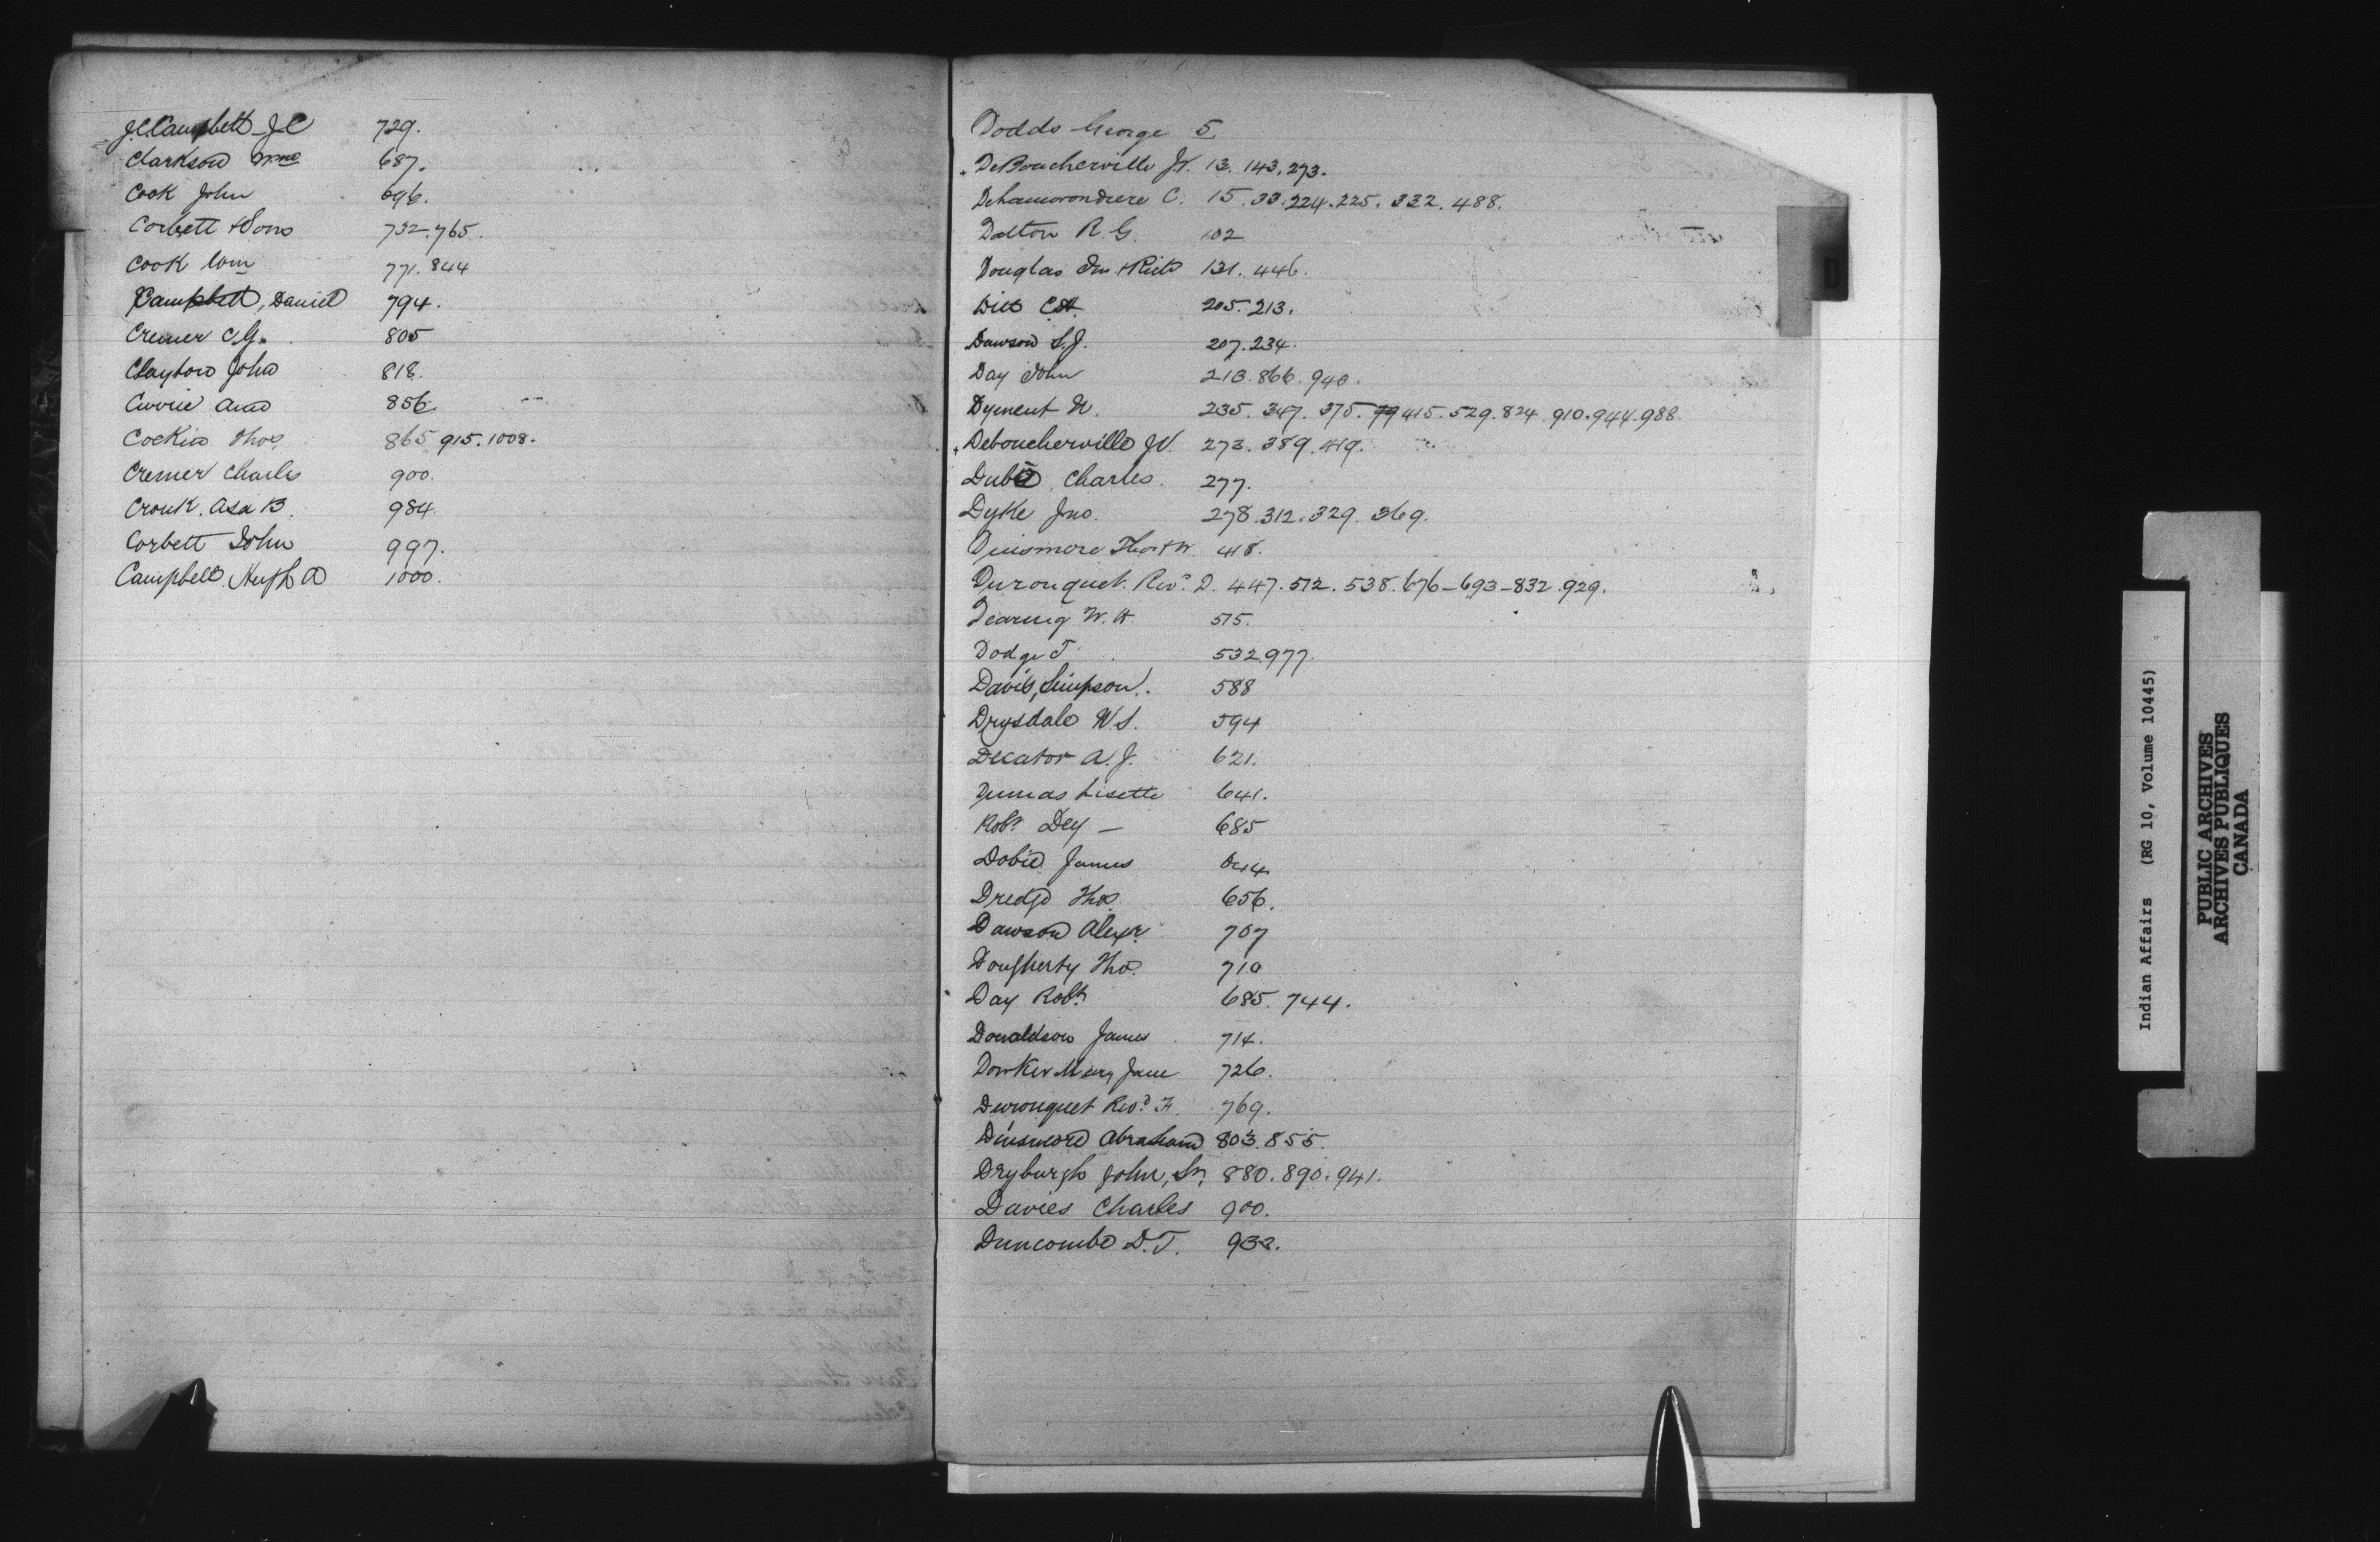 J.C. Campbell J.C 729.
Clarkson 687.
Cook John 696.
Corbett & Sons 732.765.
Cook Wm 771.844
Campbell, Daniel 794.
Cremer C.G. 805
Clayton John 818.
Currie 856
Cockin Thos 865 915.1008.
Cremer Charles 900.
Cronk. Asa B. 984
Corbett John 997.
Campbell Hugh A 1000.
Dodds George 5
DeBoucherville JV. 13. 143.273.
Delamorondiere C. 15.33.224.225.332.488.
Dalton R.G. 102
Douglas Jno 131. 446.
205.213.
Dawson S.J. 207.234.
Day John 213.866.940.
Dyment N. 235. 347. 375. 415.529.824.910.944.988
Deboucherville JV. 273.389.419.
Dubé Charles 277.
Dyke Jno. 278.312.329.369.
Dinsmore 418.
Duronquet. Revd. D. 447.512.538.676-693-832.929.
Dearing W.H. 515.
Dodge T. 532.977.
Davis, Simpson. 588
Drysdale W S. 594
Decator A.J. 621.
Dumas Lisette 641.
Robt Dey — 685
Dobie James
Dredge Thos 656.
Dawson Alexr. 707
Dougherty Tho. 710
Day Robt. 685.744.
Donaldson James 714.
Dowker Mary Jane 726.
Duronquet Revd. F. 769.
Dinsmore Abraham 803.855.
Dryburgh John, Sr, 880.890.941.
Davies Charles 900.
Duncombe D.T. 933.
D
Indian Affairs (RG 10, Volume 10445)
PUBLIC ARCHIVES
ARCHIVES PUBLIQUES
CANADA